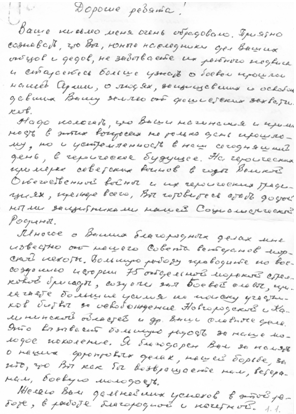 Дорогие ребята!
Ваше письмо меня очень обрадовало. Приятно
сознавать, что Вы, юные наследники дел Ваших
отцов и дедов, не забываете их ратного подвига
и стараетесь больше узнать о боевом прошлом
нашей Армии, о людях, защищавших и освобож-
давших Вашу землю от фашистских захватчи-
ков.
Надо полагать, что Ваши начинания и
в этих вопросах не только дань прошло-
му, но и устремленность в наш сегодняшний
день, в героическое будущее. На героических
примерах советских воинов в годы Великой
Отечественной войны и их героических тради-
циях, прежде всего, Вы готовитесь стать достой-
ными защитниками нашей Социалистической
Родины.
Многое о Ваших благородных делах мне
известно от нашего Совета ветеранов мор-
ской пехоты. Большую работу проводите по вос-
созданию истории 75 отдельной морской стрел-
ковой бригады, Боевой славы, при-
лагаете большие усилия по поиску участни-
ков битвы за освобождение Новгородской и Ка-
лининской областей и др. Ваши славные дела.
Это вызывает большую радость за наше мо-
лодое поколение. Я благодарен Вам за память
о наших фронтовых делах, нашей борьбе, за
то, что Вы как бы возвращаете нам, ветера-
нам, боевую молодость.
Желаю Вам дальнейших успехов в этой ра-
боте, в работе благородной и почетной.